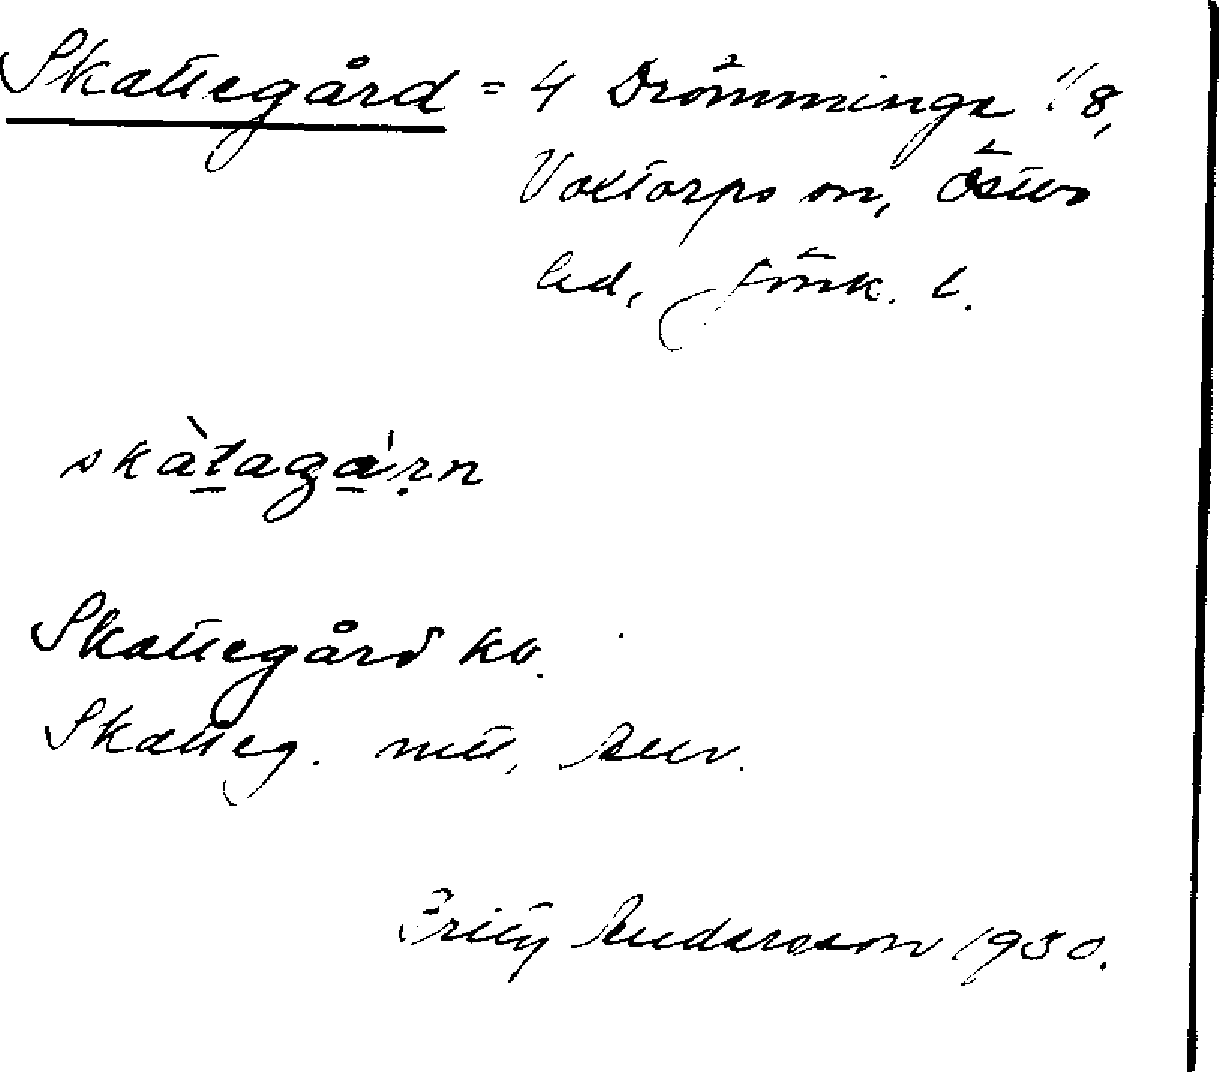 Skattegård = 4 Drömminge 1/8,
Voxtorps sn, Östbo
hd, Jönk. l.
skàtagá'rn
Skattegård ko.
Skatteg. mtl,
Fritz Andersson 1930.